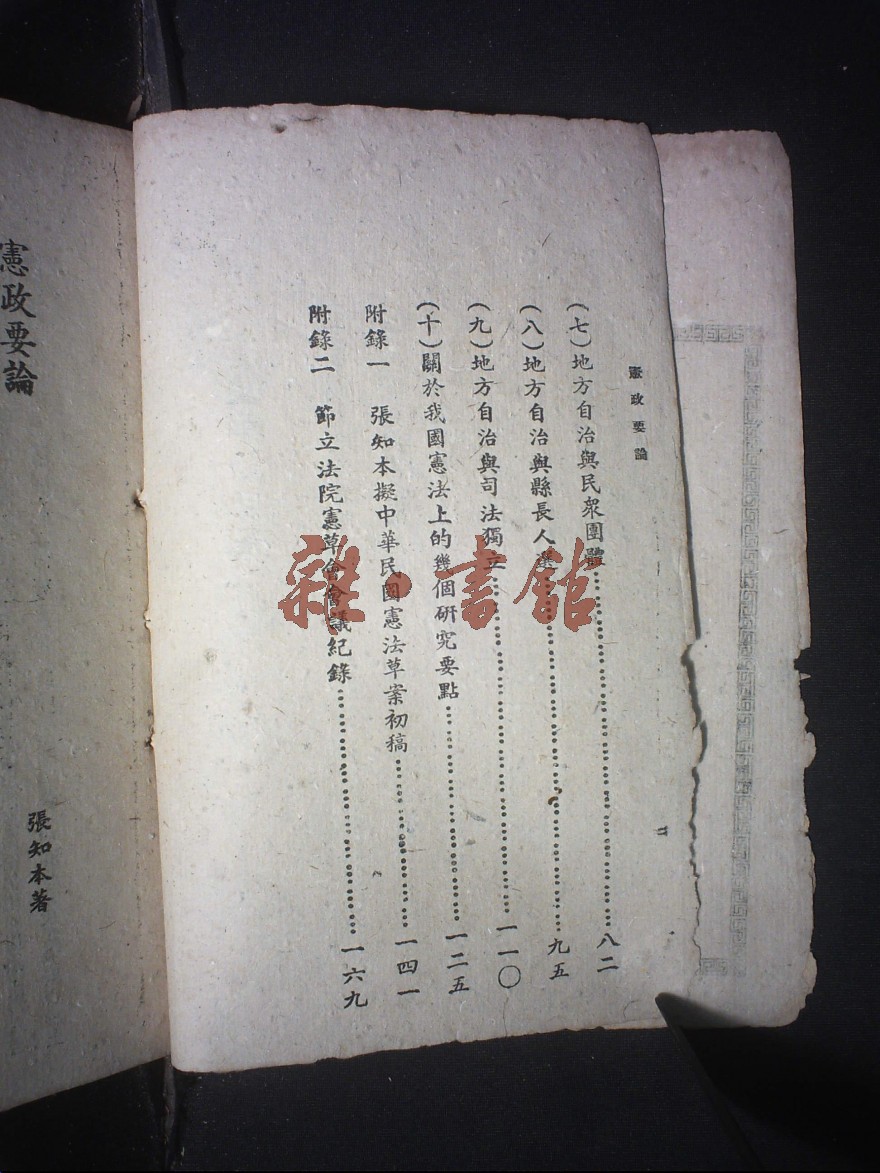 憲政要論
(七)地方自治與民衆團體……八二
(八)地方自治與縣長人選……九五
(九)地方自治與司法獨立……一一〇
(十)關於我國憲法上的幾個研究要點……一二五
附錄一 張知本擬中華民國憲法草案初稿……一四一
附錄二 節立法院憲草會會議紀錄……一六九
二
憲政要論
張知本著
雜·書館